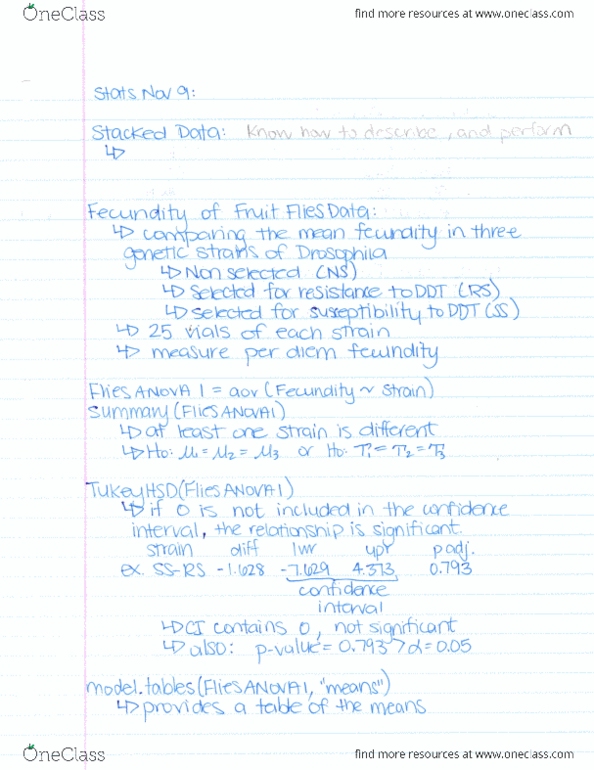 OneClass find more resources at www.oneclass.com
Stats Nov 9:
Stacked Data: Know how to describe, and perform
↳
Fecundity of Fruit Flies Data:
↳ comparing the mean fecundity in three
genetic strains of Drosophila
↳ Non selected (NS)
↳ selected for resistance to DDT (RS)
↳ selected for susceptibility to DDT (SS)
↳ 25 vials of each strain
↳ measure per diem fecundity
Flies ANOVA 1 = aov (Fecundity ~ Strain)
Summary (Flies ANOVA1)
↳ at least one strain is different
↳ Ho: μ1 = μ2 = μ3 or Ho: T1 = T2 = T3
TukeyHSD (Flies ANOVA 1)
↳ if 0 is not included in the confidence
interval, the relationship is significant.
strain diff lwr upr p adj.
ex. SS-RS -1.628 -7.629 4.373 0.793
confidence
interval
↳ CI contains 0, not significant
↳ also: p-value = 0.793 > α = 0.05
model.tables (Flies ANOVA1, "means")
↳ provides a table of the means
OneClass find more resources at www.oneclass.com